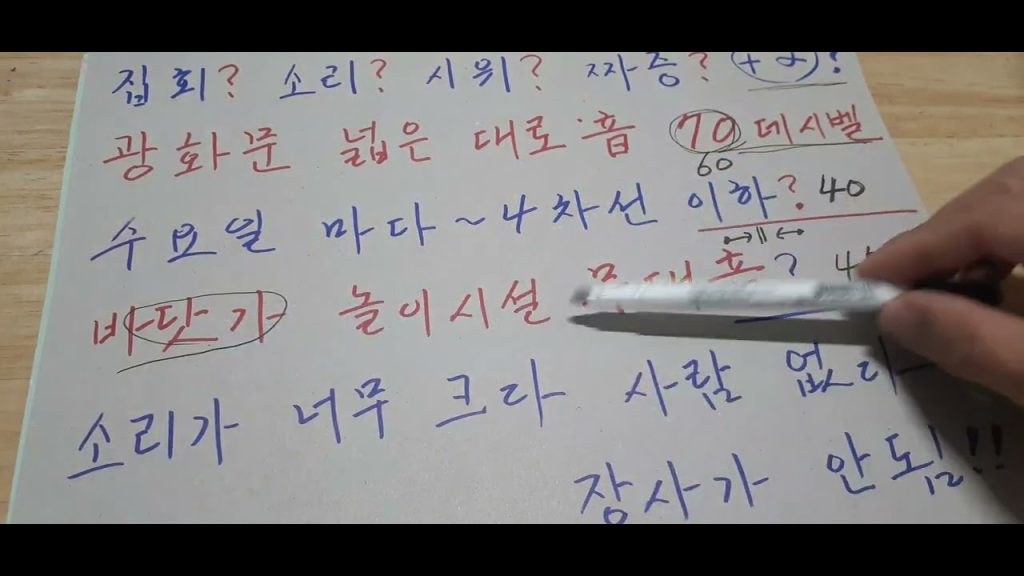 집회? 소리? 시위? 짜증? +α?
광화문 넓은 대로 음 70 데시벨
60
수요일 마다 ~ 4차선 이하? 40
바닷가 놀이시설
소리가 너무 크다 사람 없다
장사가 안됨!!